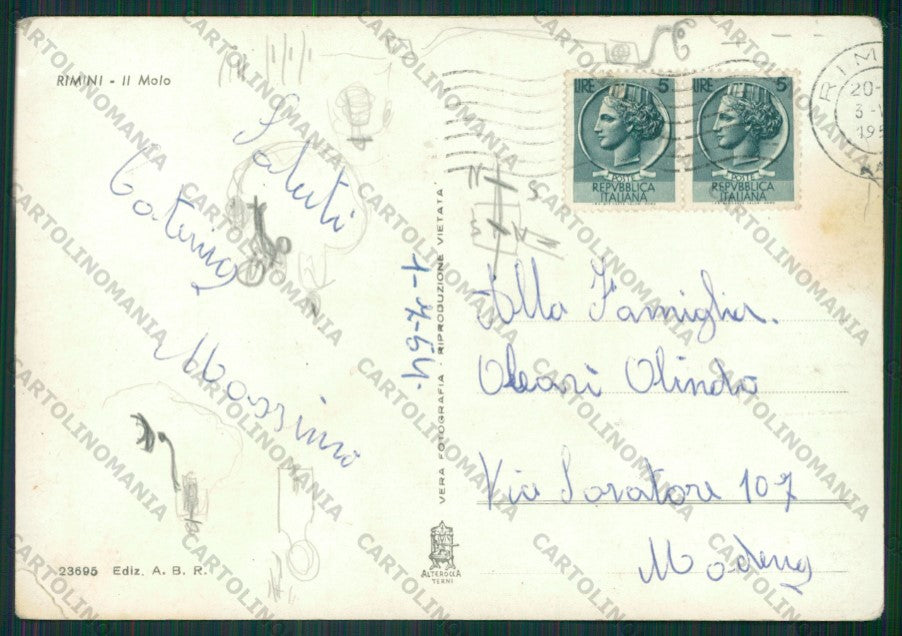 RIMINI - Il Molo
Saluti
Caterina
Massimo
23695 Ediz. A. B. R.
VERA FOTOGRAFIA - RIPRODUZIONE VIETATA
1-7-54.
ALTEROCCA
TERNI
LIRE 5
POSTE
REPVBBLICA
ITALIANA
LIRE 5
POSTE
REPVBBLICA
ITALIANA
RIM
20-
3-
195
N
S
S
N
Alla Famiglia.
Oleari Olindo
Via 107
Modena
CARTOLINOMANIA